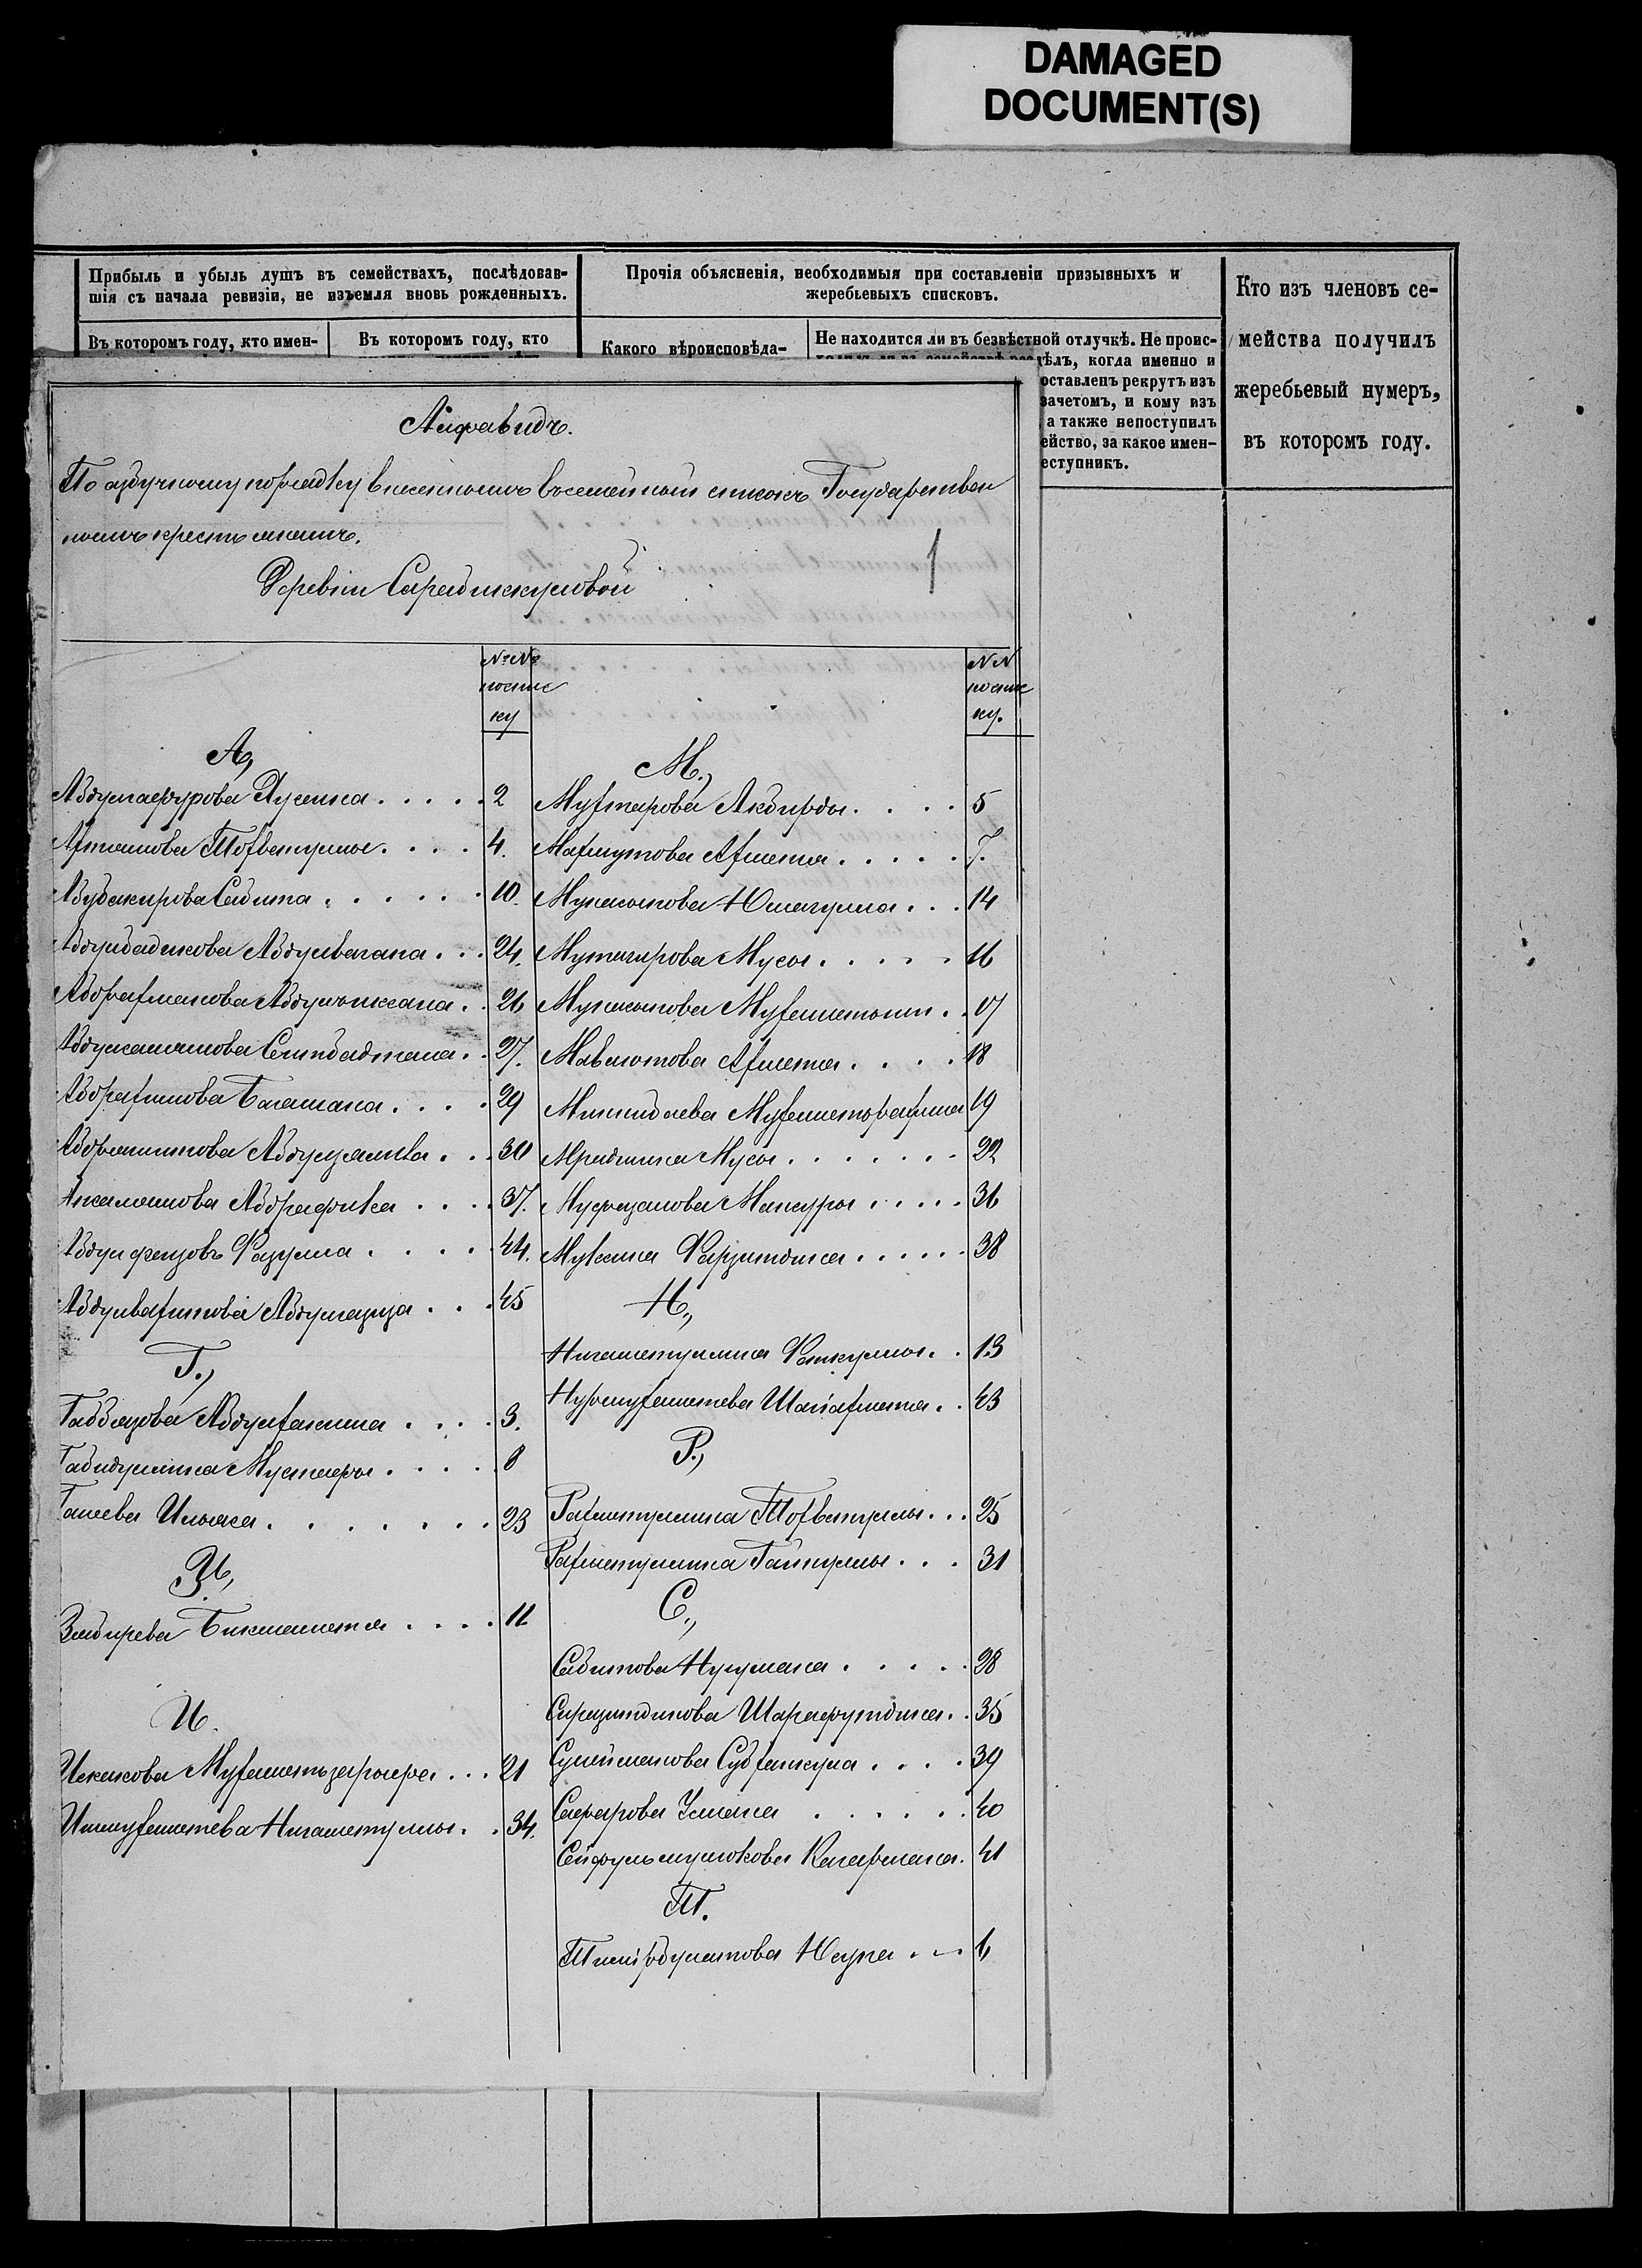 DAMAGED
DOCUMENT(S)
Прибыль и убыль душъ въ семействахъ, послѣдовав-
шія съ начала ревизіи, не изъемля вновь рожденныхъ.
Въ которомъ году, кто имен-
Въ которомъ году, кто
Прочія объясненія, необходимыя при составленіи призывныхъ и
жеребьевыхъ списковъ.
Какого вѣроисповѣда-
Не находится ли въ безвѣстной отлучкѣ. Не проис-
дѣлъ, когда именно и
оставленъ рекрутъ изъ
зачетомъ, и кому изъ
, а также непоступилъ
ейство, за какое имен-
еступникъ.
Кто изъ членовъ се-
мейства получилъ
жеребьевый нумеръ,
въ которомъ году.
Алфавидъ.
По азбучному порядку внесеннымъ въ семейный списокъ Государствен
нымъ крестьянамъ.
Деревни Сарединкуловой
1
№№
поспис
ку
NN
поспис
ку.
А,
Абдулгафурова Хусаина 2
Ахтямова Тохватуллы 4.
Абубакирова Сабита 10.
Абдулбадикова Абдулвагана 24.
Абдрахманова 26
27.
Абдрахимова Багамана 29
30
37.
Абдулфеизовъ Фазулла 44.
Абдулвахитова Абдулгазиза 45
Г.,
Габбазова Абдулхакима 3.
Габидуллина Мустафы 8
Ганеева Ильяса 23
З.,
Заитирева Бикмаметя 11
И.
Искакова Мухаметьзарифа 21
Ишмухаметева Нигаметуллы 34.
М.,
Мухтарова Акбирды 5
Махмутова Ахметя 7.
Мусагитова Юмагула 14
Мутагирова Мусы 16
17
Мавлютова Ахметя 18
Минибаева Мухаметрахима 19
Мусы 22
Мансуры 36
Фархитдина 38
Н.,
Нигаметуллина Фаткуллы 13
Нурмухаметева Шагиахметя 43
Р.,
Рахметуллина Тохватуллы 25
Рахметуллина Гайнуллы 31
С.,
Сабитова Нугумана 28
Сиразитдинова Шарафутдина 35
Сулейманова Субханкула 39
Сафарова Усмана 40
Сейфульмулюкова Кагармана 41
Т.
Тимирбулатова Юсупа 6